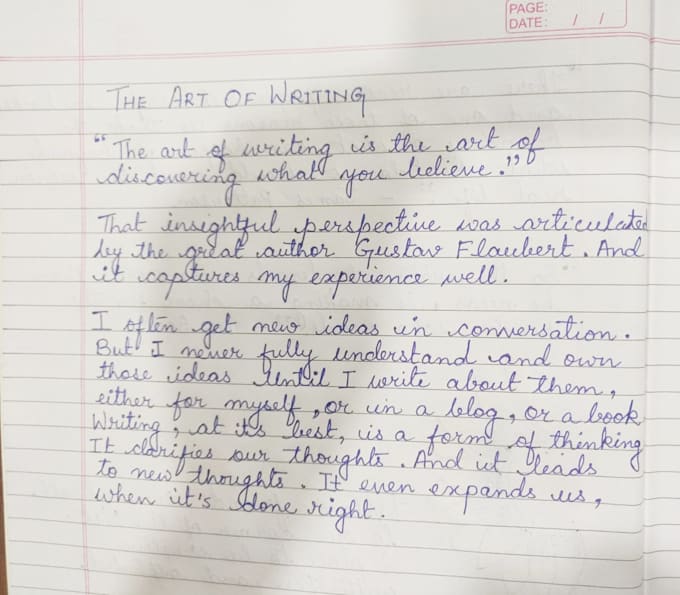 PAGE:
DATE: / /
THE ART OF WRITING
"The art of writing is the art of
discovering what you believe."
That insightful perspective was articulated
by the great author Gustav Flaubert. And
it captures my experience well.
I often get new ideas in conversation.
But I never fully understand and own
those ideas until I write about them,
either for myself, or in a blog, or a book
Writing, at its best, is a form of thinking
It clarifies our thoughts. And it leads
to new thoughts. It even expands us,
when it's done right.